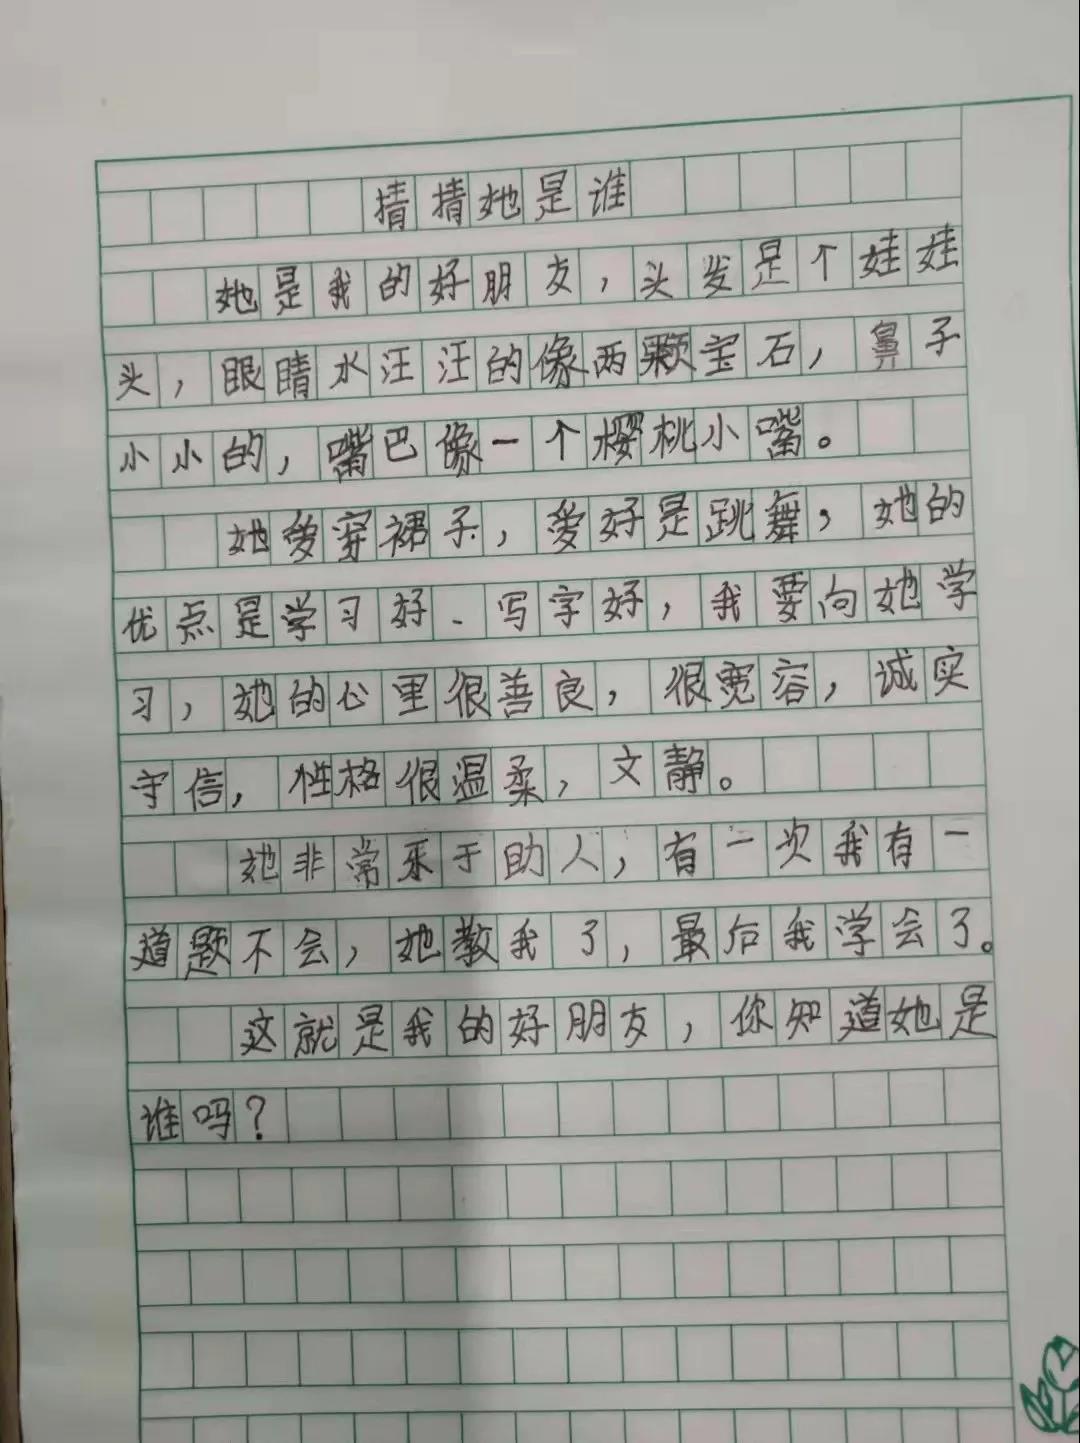 猜猜她是谁
她是我的好朋友，头发是个娃娃
头，眼睛水汪汪的像两颗宝石，鼻子
小小的，嘴巴像一个樱桃小嘴。
她爱穿裙子，爱好是跳舞，她的
优点是学习好、写字好，我要向她学
习，她的心里很善良，很宽容，诚实
守信，性格很温柔，文静。
她非常乐于助人，有一次我有一
道题不会，她教我了，最后我学会了。
这就是我的好朋友，你知道她是
谁吗？